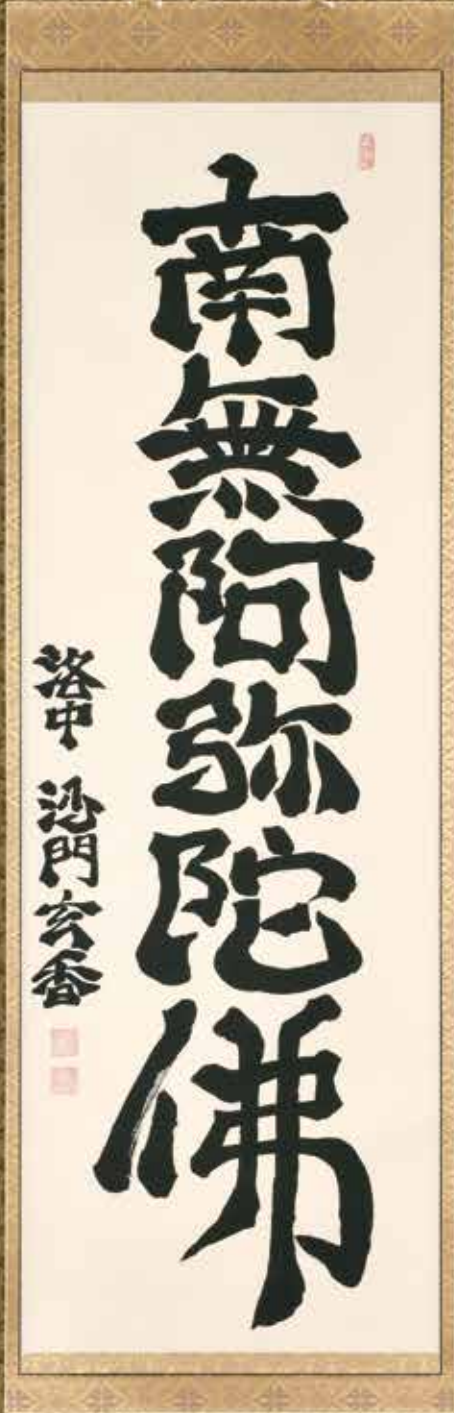 南無阿弥陀佛
洛中 沙門玄香